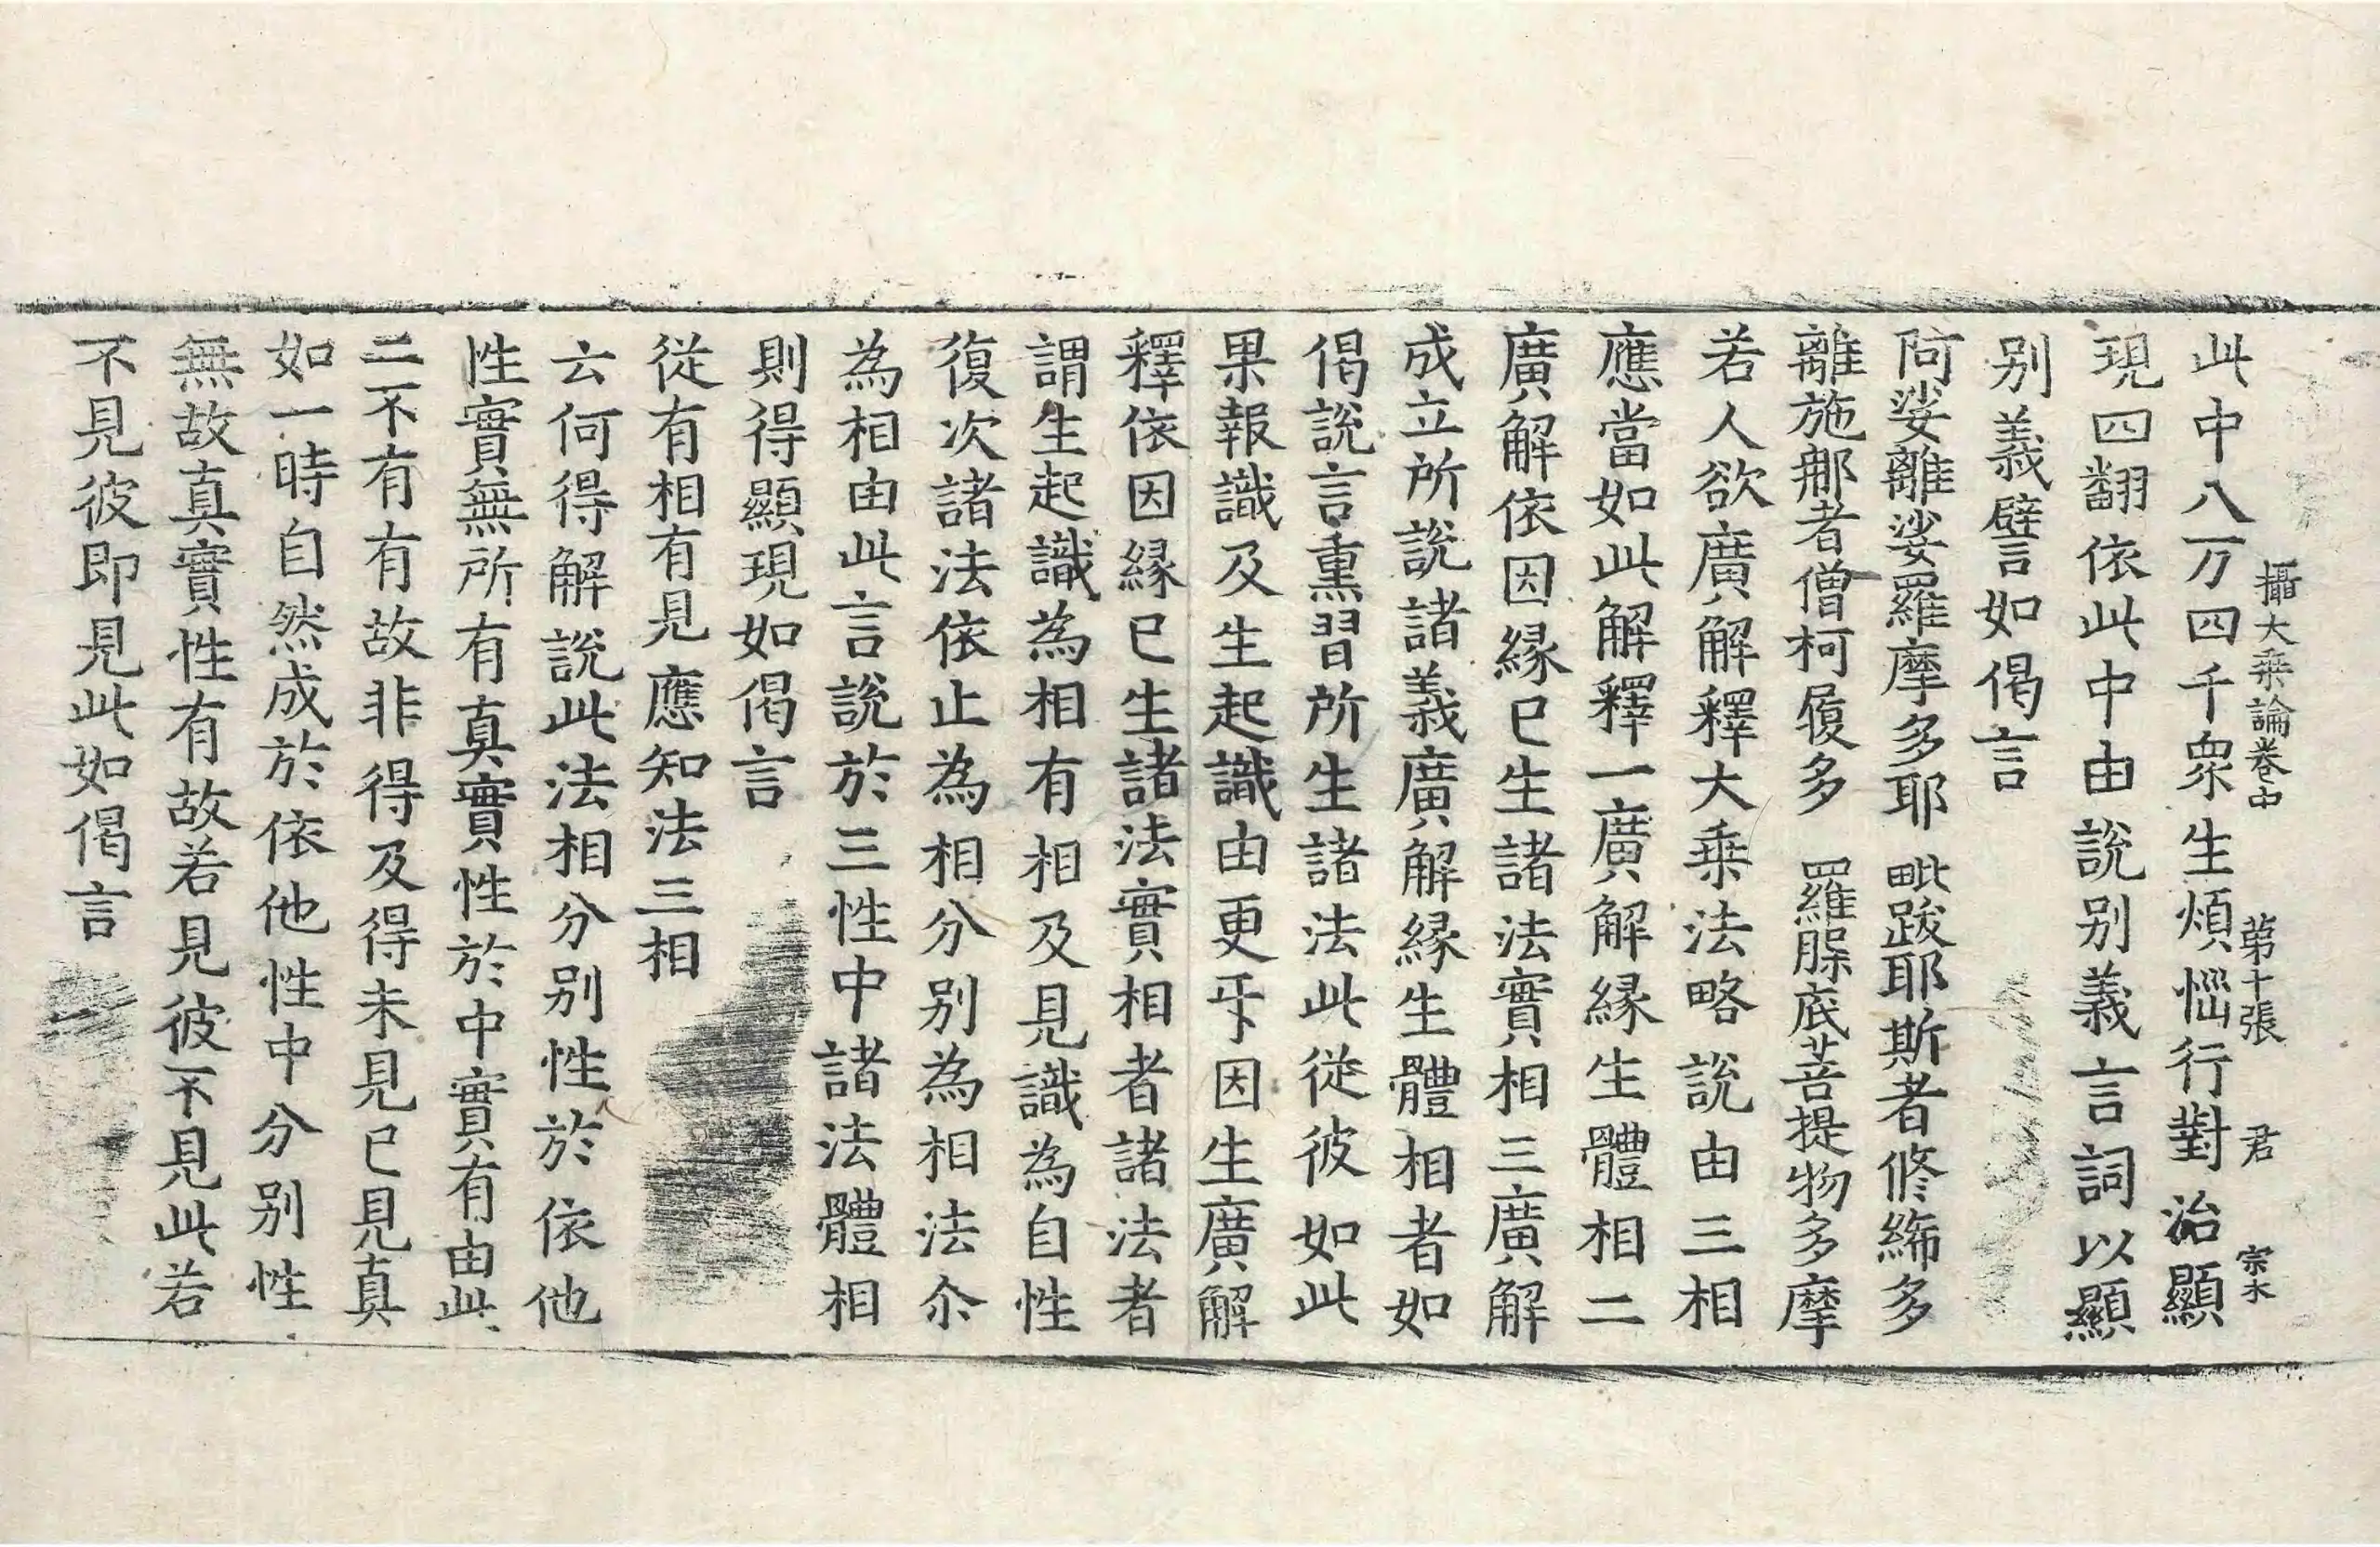 攝大乘論卷中　第十張　君　宗木
此中八万四千衆生煩惱行對治顯
現四翻依此中由說別義言詞以顯
別義譬言如偈言
阿娑離娑羅摩多耶　毗跋耶斯者修絺多
離施那者僧柯履多　羅脲底菩提物多摩
若人欲廣解釋大乘法略說由三相
應當如此解釋一廣解緣生體相二
廣解依因緣已生諸法實相三廣解
成立所說諸義廣解緣生體相者如
偈說言熏習所生諸法此從彼如此
果報識及生起識由更㸦因生廣解
釋依因緣已生諸法實相者諸法者
謂生起識為相有相及見識為自性
復次諸法依止為相分別為相法尒
為相由此言說於三性中諸法體相
則得顯現如偈言
從有相有見應知法三相
云何得解說此法相分別性於依他
性實無所有真實性於中實有由此
二不有有故非得及得未見已見真
如一時自然成於依他性中分別性
無故真實性有故若見彼不見此若
不見彼即見此如偈言